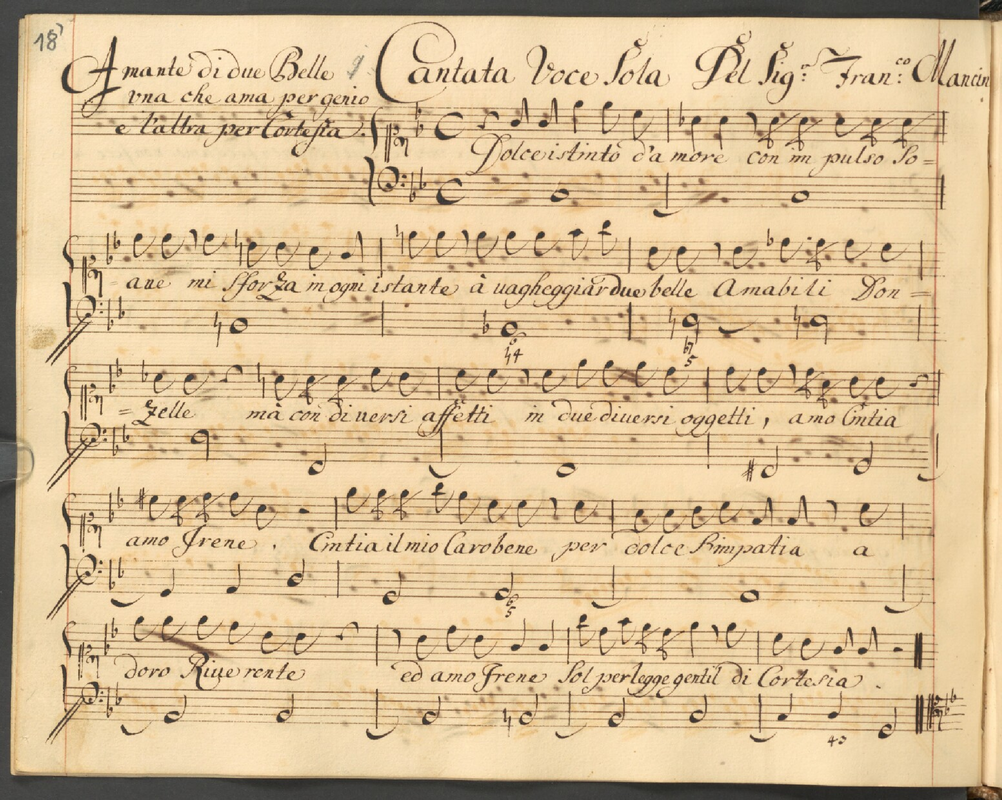 18
Amante di due Belle Cantata Voce Sola Del Sig.r Fran.co Mancin
vna che ama per genio
e l'altra per Cortesia.
Dolce istinto d'amore con im pulso So=
= aue mi sforza in ogni istante à uagheggiar due belle Amabili Don=
= zelle mà con diuersi affetti in due diuersi oggetti, amo Cintia
amo Irene. Cintia il mio Caro bene per dolce Simpatia a
doro Riuerente ed amo Irene Sol per legge gentil di Cortesia.